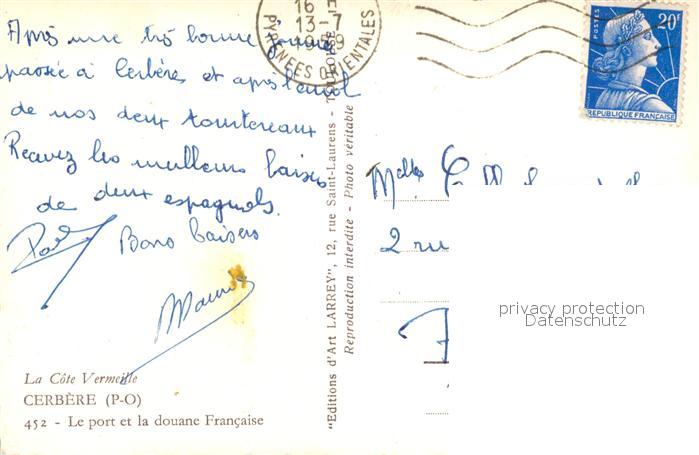 Après une très bonne
passée à Cerbères et après l'envol
de nos deux tourtereaux
Recevez les meilleurs baisers
de deux espagnols.
Bons baisers
La Côte Vermeille
CERBÈRE (P-O)
452 - Le port et la douane Française
"Editions d'Art LARREY", 12, rue Saint-Laurens - TOULOUSE
Reproduction interdite - Photo véritable
16 H
13-7
1959
PYRENEES ORIENTALES
POSTES
20F
REPUBLIQUE FRANÇAISE
Melles
2 ru
privacy protection
Datenschutz